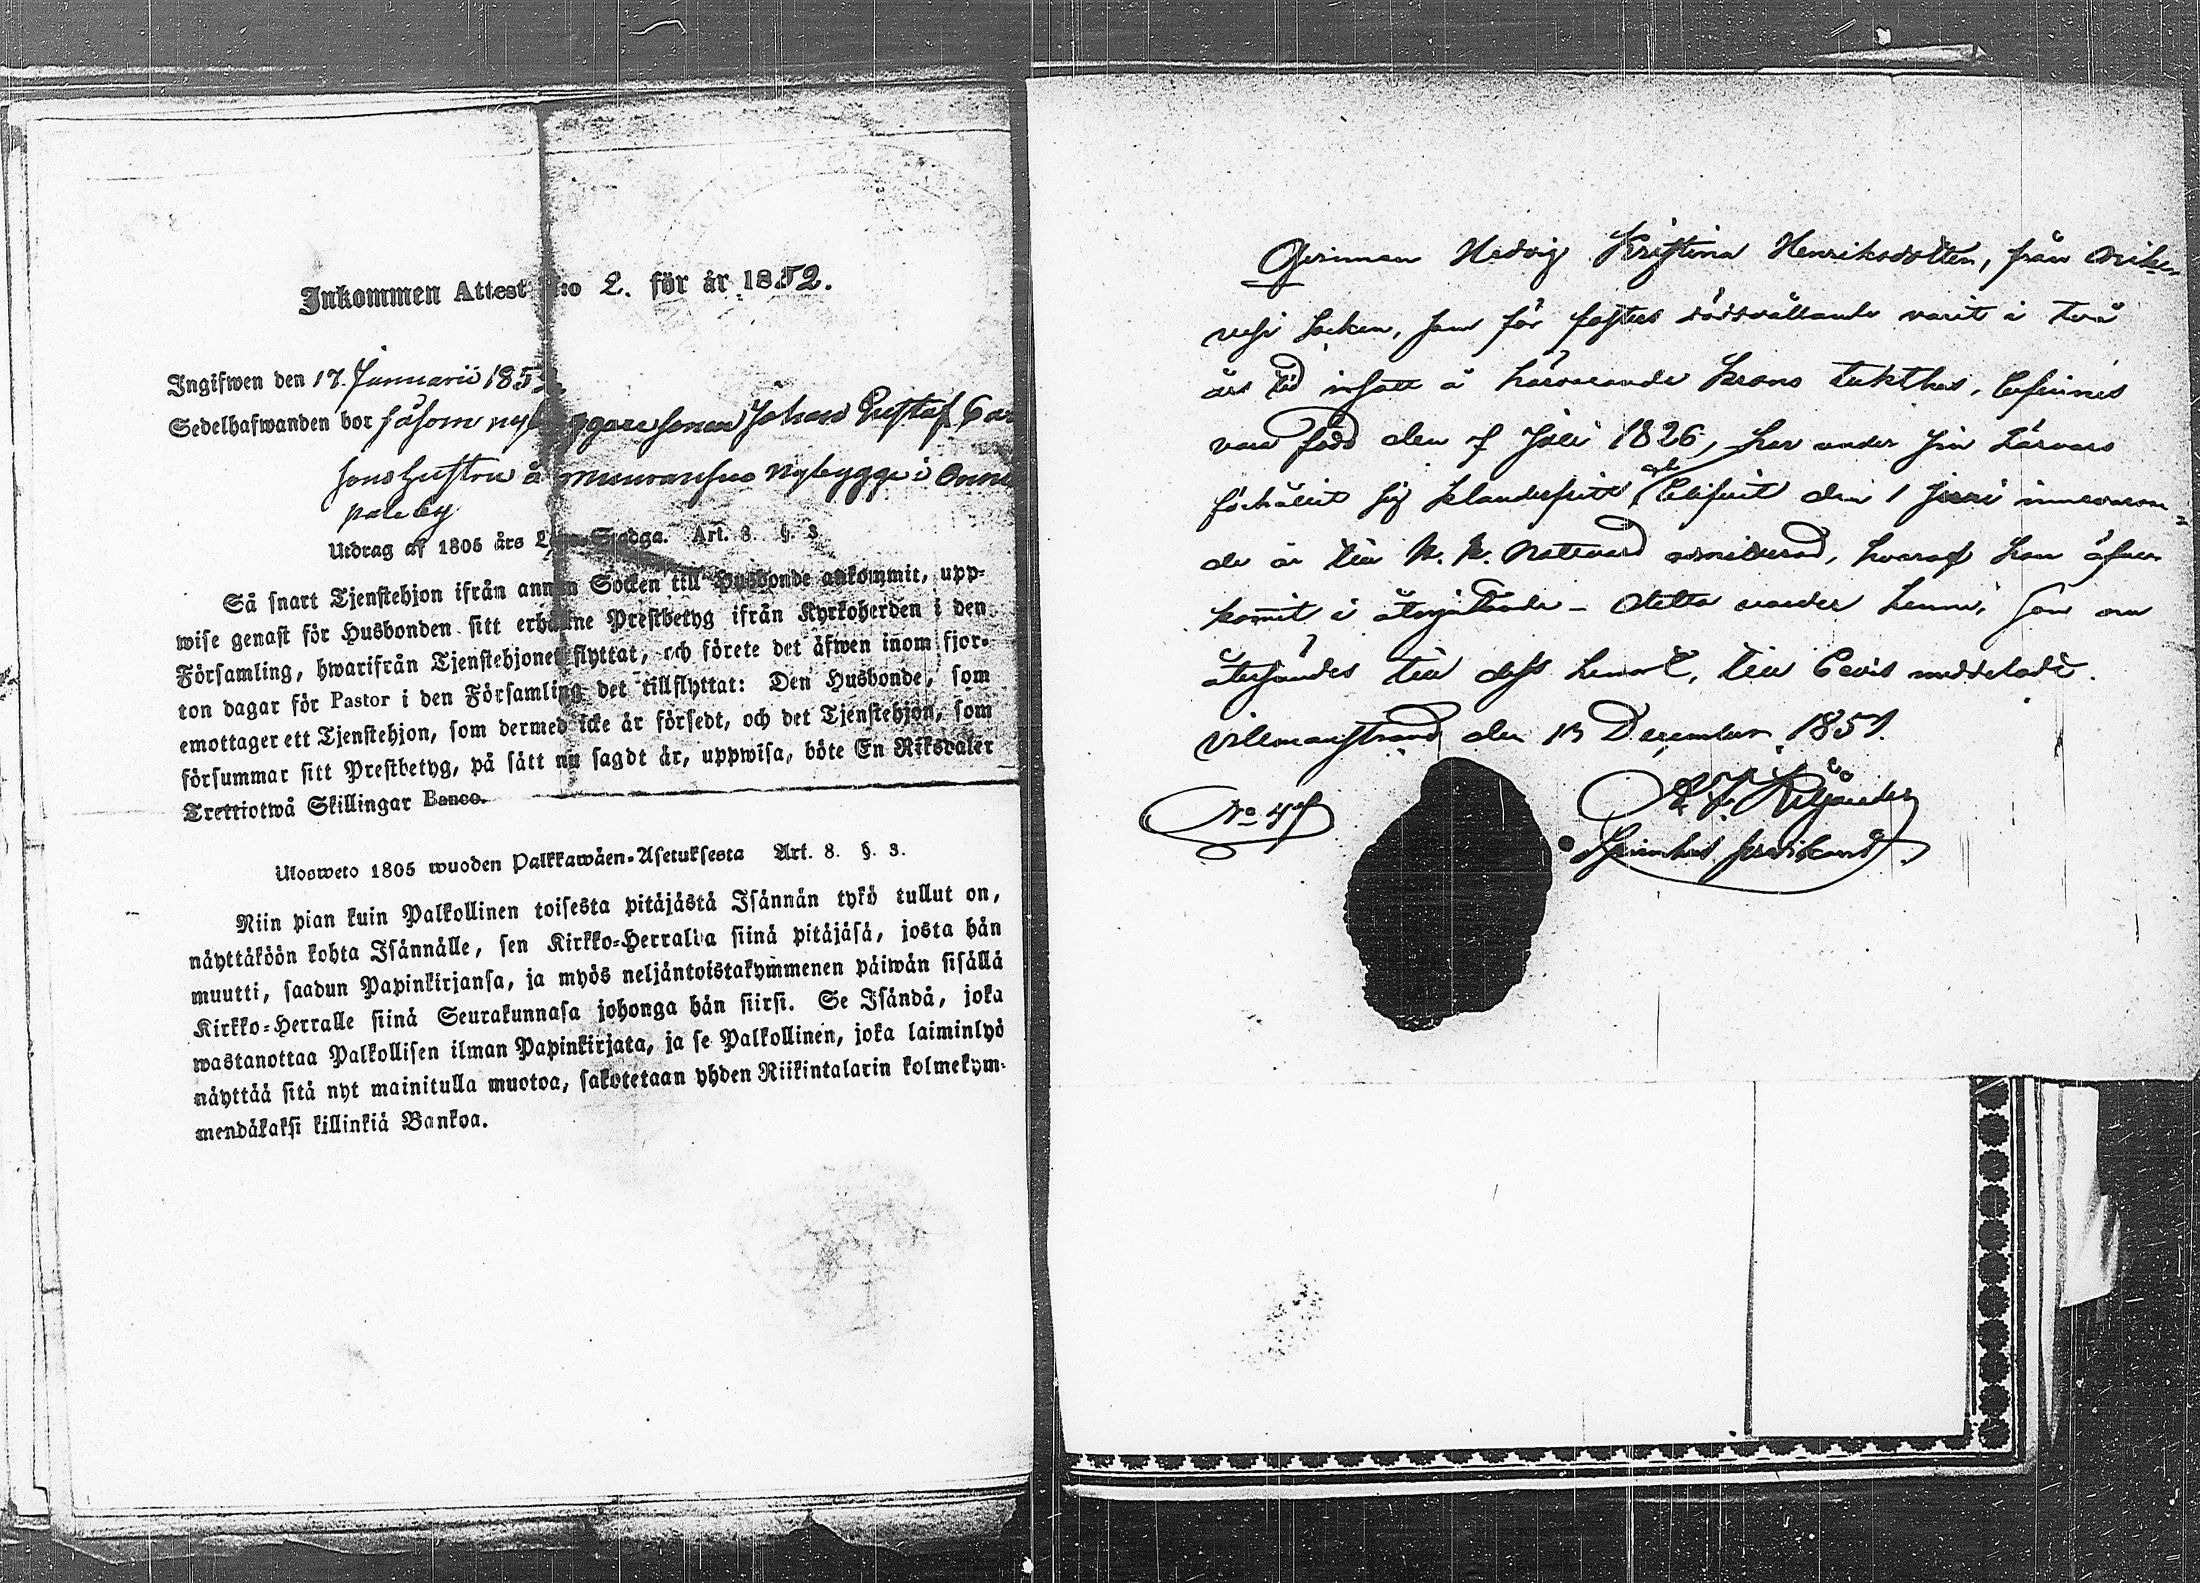 Inkommen Attest N:o 2. för år 1852.
Ingifwen den 17. Januarii 185
Sedelhafwanden bor såsom nybyggaresonen Johan Gustaf
hustru å Nybygge i
by
Utdrag af 1805 års Lego-Stadga. Art. 8. §. 3
Så snart Tjenstehjon ifrån annan Socken till Husbonde ankommit, upp-
wise genast för Husbonden sitt erhållne Prestbetyg ifrån Kyrkoherden i den
Församling, hwarifrån Tjenstehjonet flyttat, och förete det äfwen inom fjor-
ton dagar för Pastor i den Församling det tillflyttat: Den Husbonde, som
emottager ett Tjenstehjon, som dermed icke är försedt, och det Tjenstehjon, som
försummar sitt Prestbetyg, på sätt nu sagdt är, uppwisa, böte En Riksdaler
Trettiotwå Skillingar Banco.
Ulosweto 1805 wuoden Palkkawäen-Asetuksesta Art. 8. §. 3.
Niin pian kuin Palkollinen toisesta pitäjästä Isännän tykö tullut on,
näyttäköön kohta Isännälle, sen Kirkko-Herralda siinä pitäjäsä, josta hän
muutti, saadun Papinkirjansa, ja myös neljäntoistakymmenen päiwän sisällä
Kirkko-Herralle siinä Seurakunnasa johonga hän siirsi. Se Isändä, joka
wastanottaa Palkollisen ilman Papinkirjata, ja se Palkollinen, joka laiminlyö
näyttää sitä nyt mainitulla muotoa, sakotetaan yhden Riikintalarin kolmekym-
mendäkaksi killinkiä Bankoa.
Qvinnan Hedvig Kristina Henriksdotter, från
socken, som för fosters varit i två
års tid insatt å härvarande Krono tukthus, befinnes
vara född den 7 Juli 1826, har under sin härvaro
förhållit sig klanderfritt och blifvit den 1 innevaran-
de år till H. H. Nattvard admitterad, hvaraf hon äfven
kommit i åtnjutande - Detta varder henne, som nu
återsändes till dess hemort, till bevis meddeladt.
Villmanstrand den December 1851.
No
Spinnhus predikant.